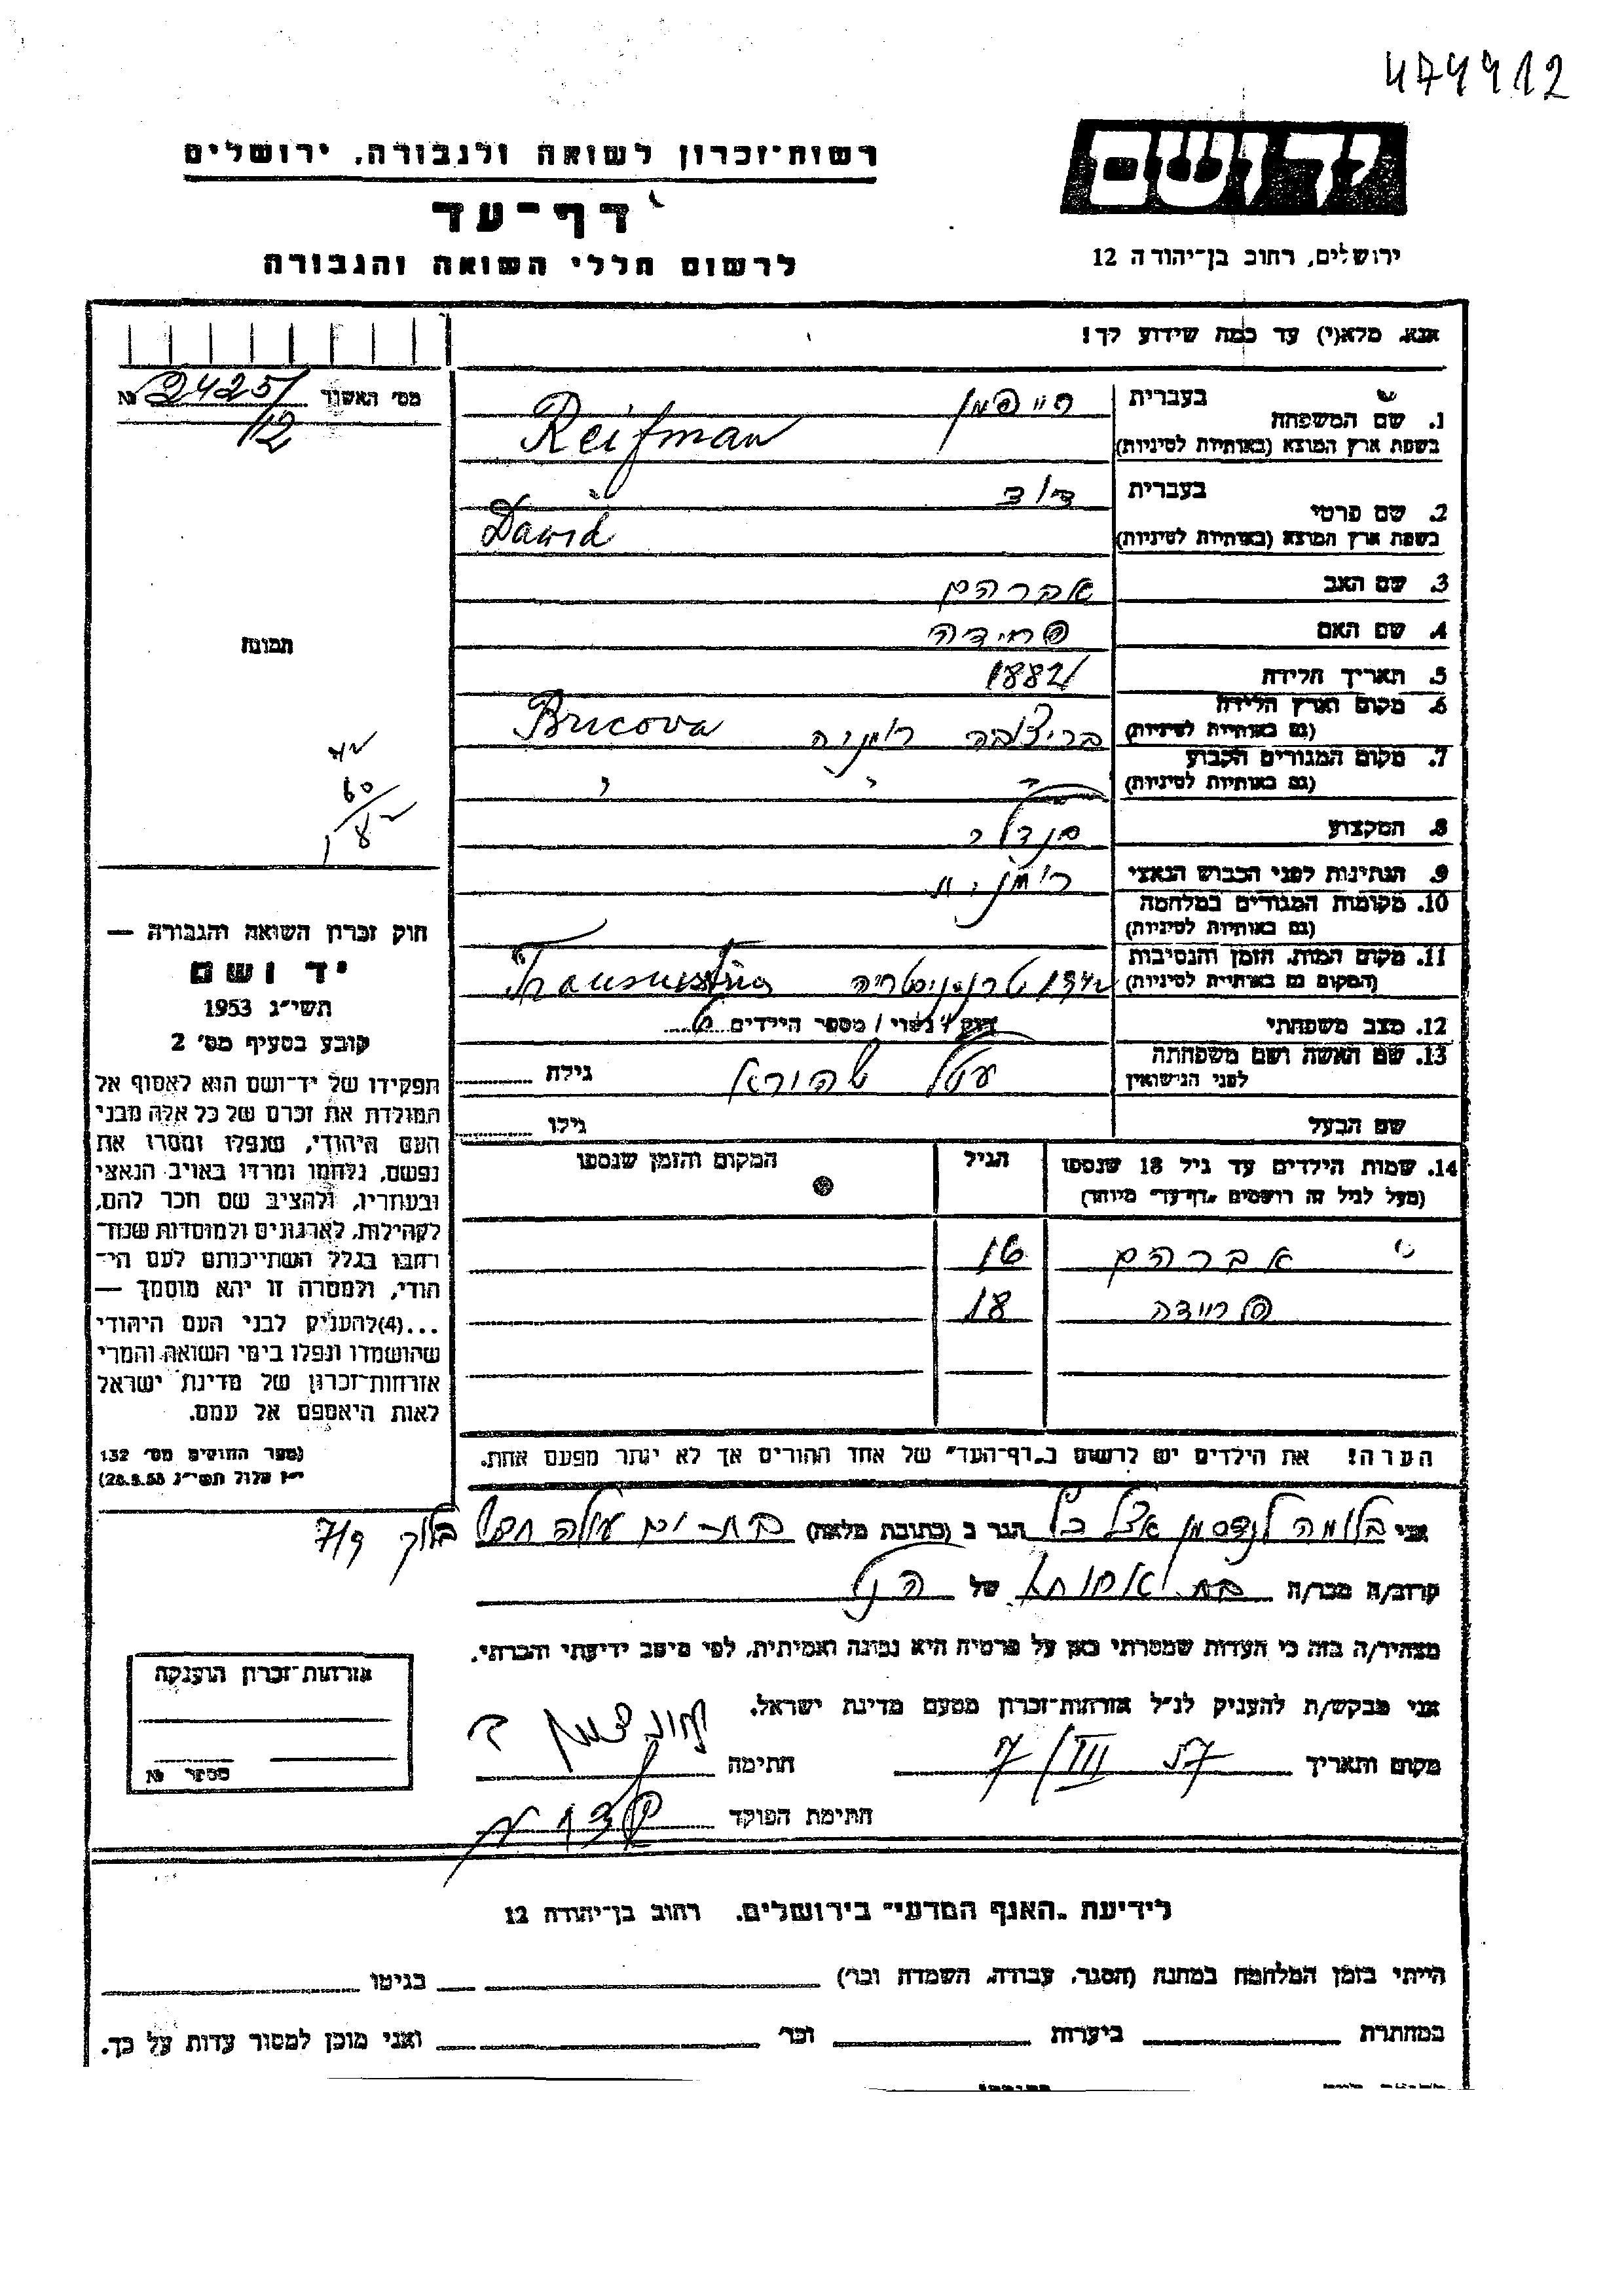 474912
יד ושם
רשות־זכרון לשואה ולגבורה, ירושלים
דף־עד
לרשום חללי השואה והגבורה
ירושלים, רחוב בן־יהודה 12
אנא, מלא(י) עד כמה שידוע לך!
מס' האשור 2425/12 №
תמונה
42
60
82
1. שם המשפחה בעברית רייפמן
בשפת ארץ המוצא (באותיות לטיניות) Reifman
2. שם פרטי בעברית דוד
בשפת ארץ המוצא (באותיות לטיניות) Dawid
3. שם האב אברהם
4. שם האם פרידה
5. תאריך הלידה 1882
6. מקום וארץ הלידה (גם באותיות לטיניות) בריצ'בה רומניה Bricova
7. מקום המגורים הקבוע (גם באותיות לטיניות) " " "
8. המקצוע
9. הנתינות לפני הכבוש הנאצי רומנית
10. מקומות המגורים במלחמה (גם באותיות לטיניות)
11. מקום המות, הזמן והנסיבות (המקום גם באותיות לטיניות) 1942 טרנסניסטריה Transnistria
12. מצב משפחתי רווק / נשוי / מספר הילדים 6
13. שם האשה ושם משפחתה לפני הנישואין עטל גילה
שם הבעל גילו
14. שמות הילדים עד גיל 18 שנספו (מעל לגיל זה רושמים "דף־עד" מיוחד) הגיל המקום והזמן שנספו
אברהם 16
פרידה 18
הערה! את הילדים יש לרשום ב"דף־העד" של אחד ההורים אך לא יותר מפעם אחת.
חוק זכרון השואה והגבורה —
יד ושם
תשי"ג 1953
קובע בסעיף מס' 2
תפקידו של יד־ושם הוא לאסוף אל
המולדת את זכרם של כל אלה מבני
העם היהודי, שנפלו ומסרו את
נפשם, נלחמו ומרדו באויב הנאצי
ובעוזריו, ולהציב שם וזכר להם,
לקהילות, לארגונים ולמוסדות שנח־
רבו בגלל השתייכותם לעם הי־
הודי, ולמטרה זו יהא מוסמך —
...(4) להעניק לבני העם היהודי
שהושמדו ונפלו בימי השואה והמרי
אזרחות־זכרון של מדינת ישראל
לאות היאספם אל עמם.
(ספר החוקים מס' 132
י"ז אלול תשי"ג 28.8.53)
אני בלומה לנדסמן הגר ב (כתובת מלאה) בת-ים בלוק 7/9
קרוב/ה מכר/ה בת אחותו של הנ"ל
מצהיר/ה בזה כי העדות שמסרתי כאן על פרטיה היא נכונה ואמיתית, לפי מיטב ידיעתי והכרתי.
אני מבקש/ת להעניק לנ"ל אזרחות־זכרון מטעם מדינת ישראל.
מקום ותאריך 7/III 57 חתימה
חתימת הפוקד
אזרחות־זכרון הוענקה
מספר №
לידיעת "האגף המדעי" בירושלים. רחוב בן־יהודה 12
הייתי בזמן המלחמה במחנה (הסגר, עבודה, השמדה וכו') בגיטו
במחתרת ביערות וכו' ואני מוכן למסור עדות על כך.